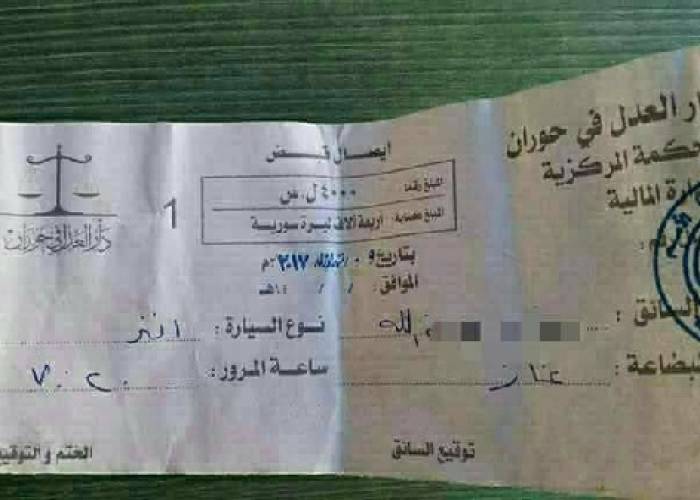 دار العدل في حوران
المحكمة المركزية
المالية
ايصال قبض
المبلغ رقما: ٤٠٠٠ ل.س
المبلغ كتابة: أربعة آلاف ليرة سورية
دار العدل في حوران
1
بتاريخ ٢٠١٧م
الموافق: / / ١٤هـ
السائق :
نوع السيارة : انتر
البضاعة : غاز
ساعة المرور : ٧.٢٠
توقيع السائق
الختم والتوقيع